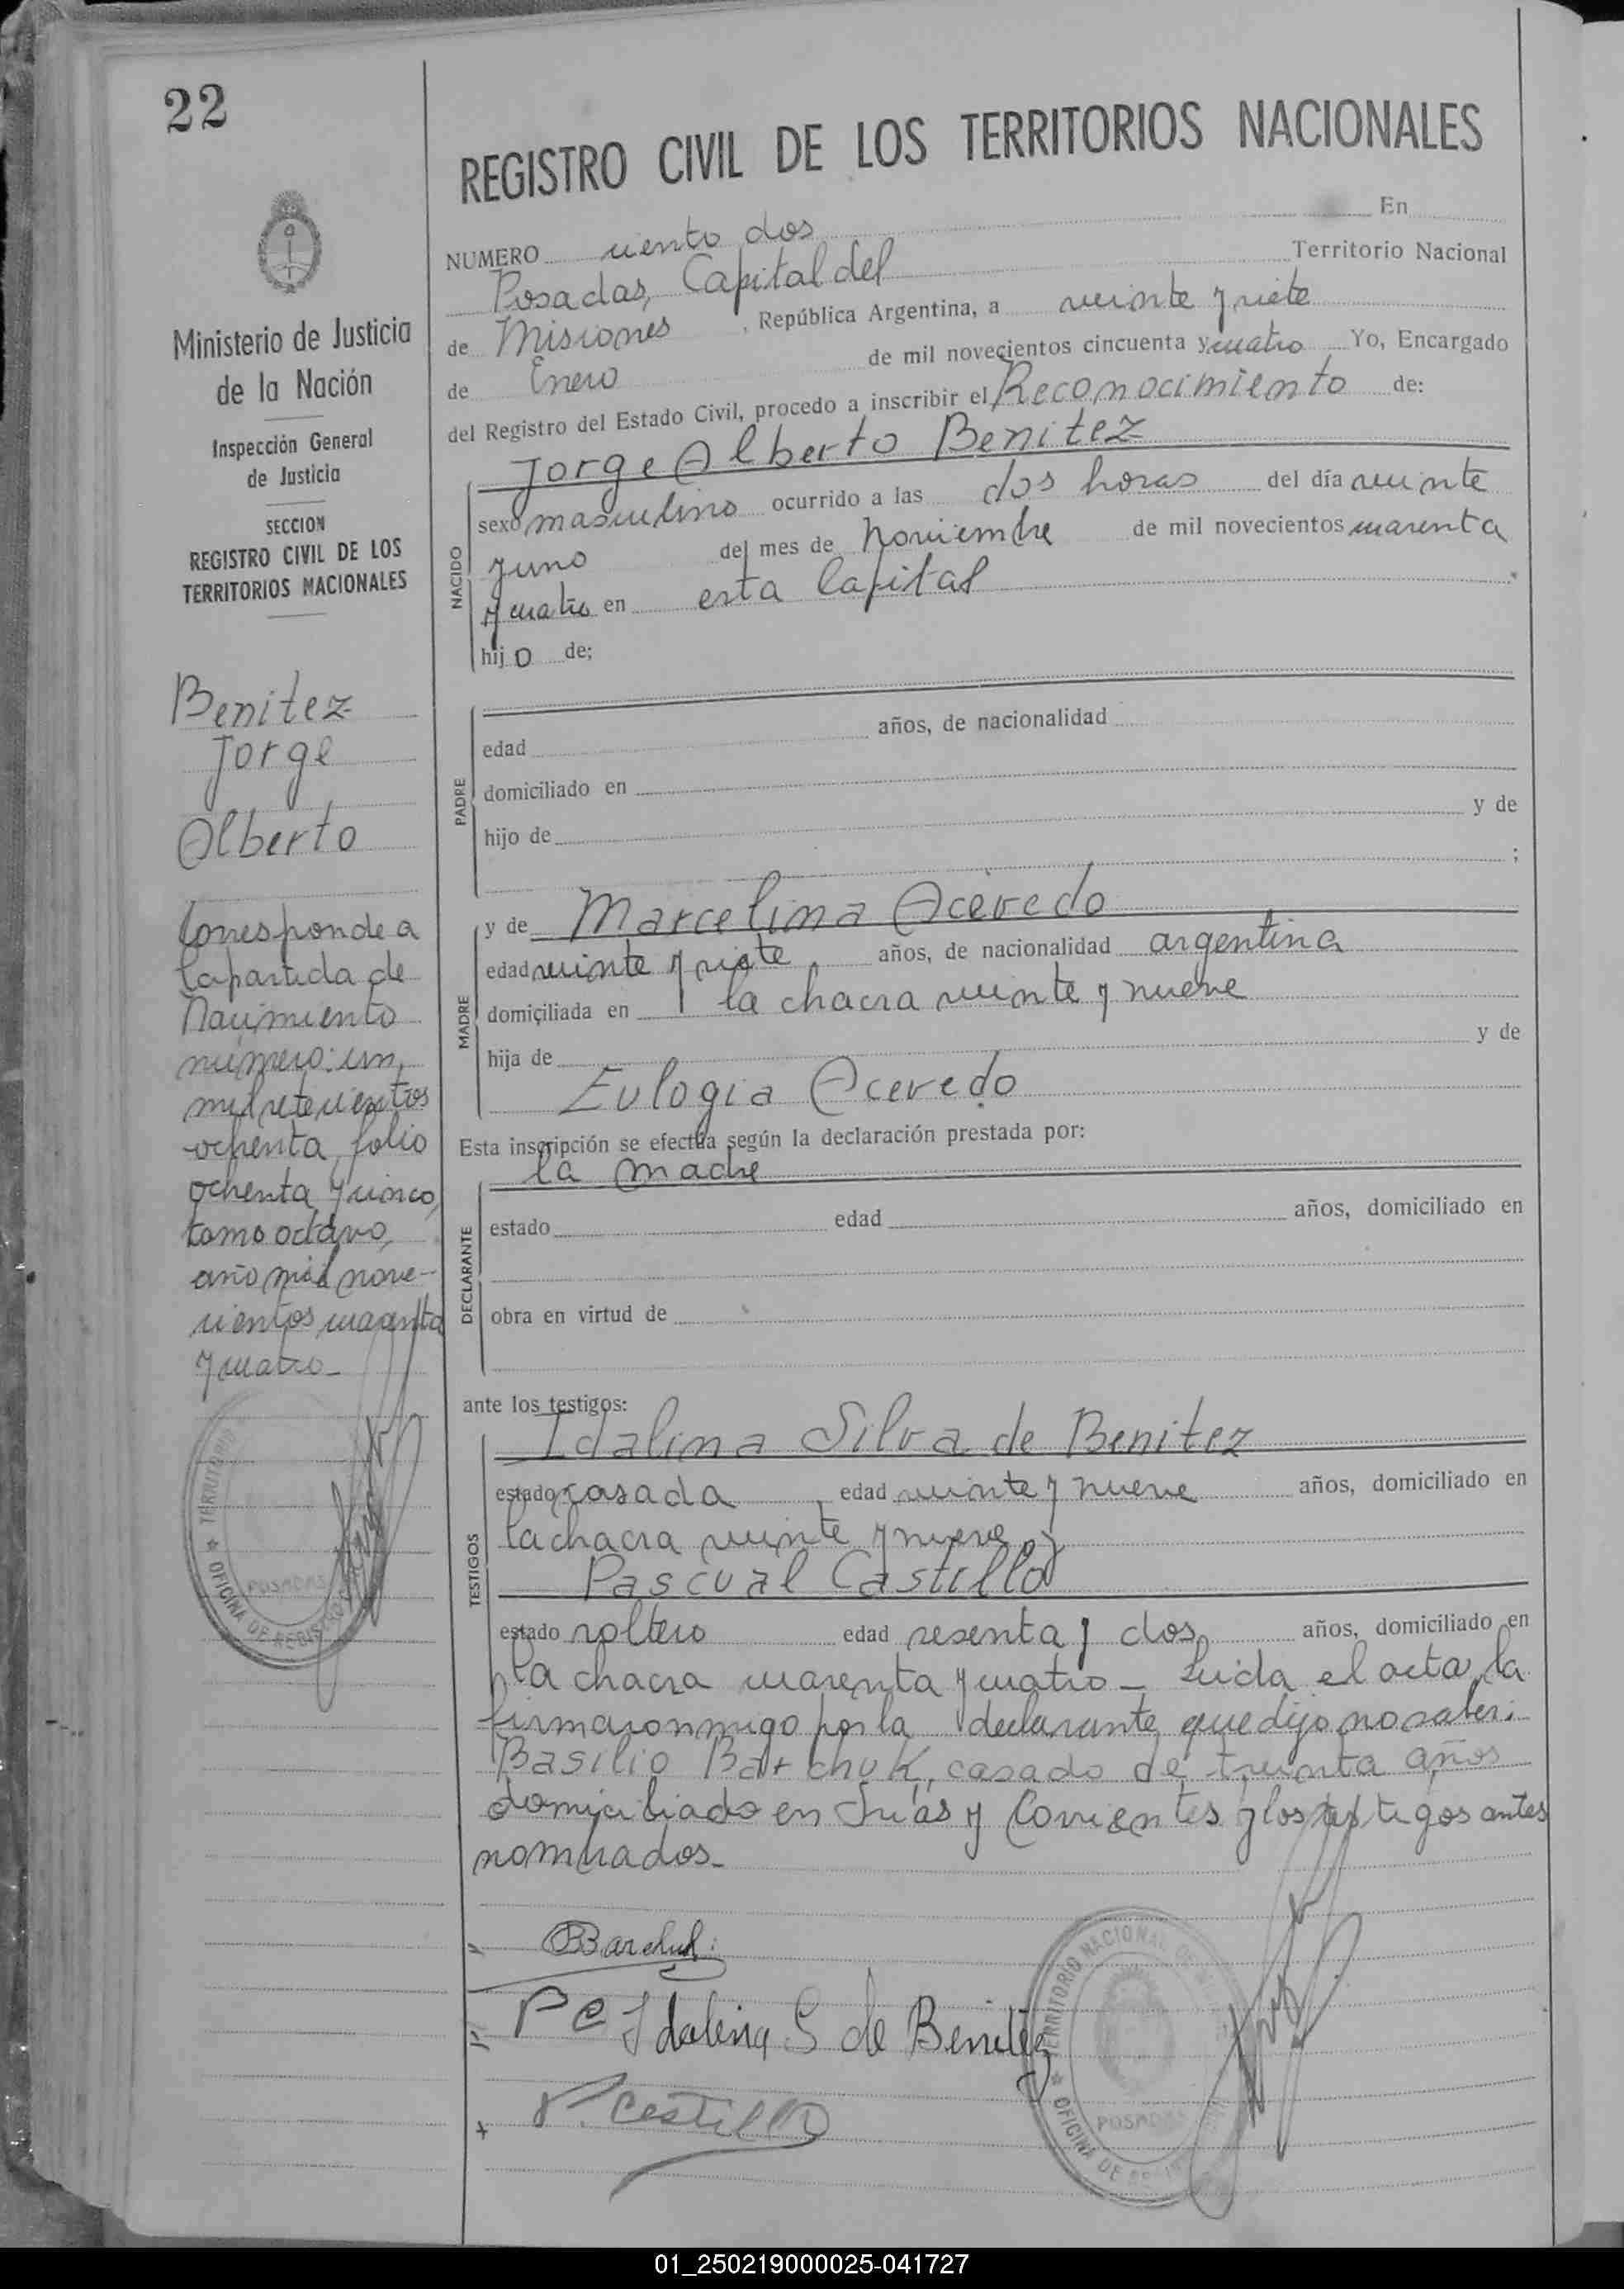 22
Ministerio de Justicia
de la Nación
Inspección General
de Justicia
SECCION
REGISTRO CIVIL DE LOS
TERRITORIOS NACIONALES
Benitez
Jorge
Alberto
Corresponde a
la partida de
Nacimiento
número: un
mil setecientos
ochenta, folio
ochenta y cinco,
tomo octavo,
año mil nove-
cientos cuarenta
y cuatro_
TERRITORIO
POSADAS
OFICINA DE REGISTRO
REGISTRO CIVIL DE LOS TERRITORIOS NACIONALES
NUMERO ciento dos En
Posadas, Capital del Territorio Nacional
de Misiones, República Argentina, a veinte y siete
de Enero de mil novecientos cincuenta y cuatro Yo, Encargado
del Registro del Estado Civil, procedo a inscribir el Reconocimiento de:
Jorge Alberto Benitez
NACIDO
sexo masculino ocurrido a las dos horas del día veinte
y uno del mes de Noviembre de mil novecientos cuarenta
y cuatro en esta Capital
hijo de;
PADRE
edad años, de nacionalidad
domiciliado en
hijo de y de
;
MADRE
y de Marcelina Acevedo
edad veinte y siete años, de nacionalidad argentina
domiciliada en la chacra veinte y nueve
hija de y de
Eulogia Acevedo
Esta inscripción se efectúa según la declaración prestada por:
la madre
DECLARANTE
estado edad años, domiciliado en
obra en virtud de
ante los testigos:
TESTIGOS
Idalina Silva de Benitez
estado casada, edad veinte y nueve años, domiciliado en
la chacra veinte y nueve y
Pascual Castillo
estado soltero edad sesenta y dos, años, domiciliado en
la chacra cuarenta y cuatro_ Leida el acta, la
firmaron conmigo por la declarante que dijo no saber:
Basilio Barchuk, casado de treinta años
domiciliado en Frías y Corrientes y los testigos antes
nombrados_
" BBarchuk
" Pe Idalina S de Benitez
+ P. Castillo
TERRITORIO NACIONAL DE
POSADAS
OFICINA DE
01_250219000025-041727